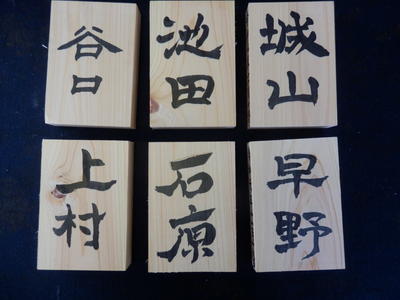 谷口
池田
城山
上村
石原
早野